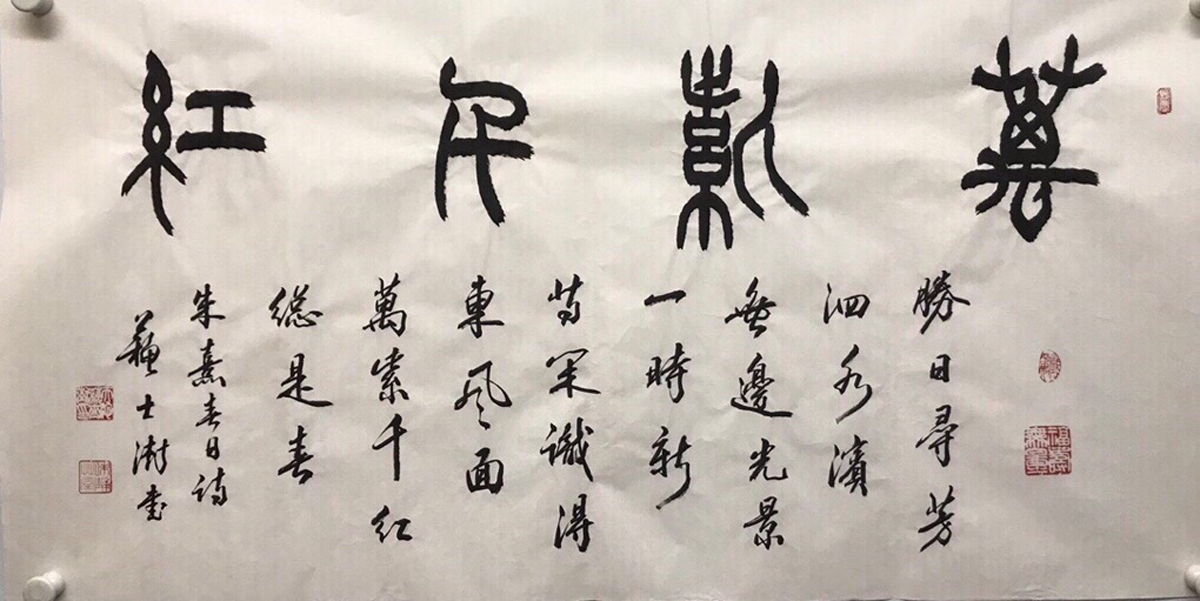 萬紫千紅
勝日尋芳
泗水濱
無邊光景
一時新
等閑識得
東風面
萬紫千紅
總是春
朱熹春日詩
蘇士澍書